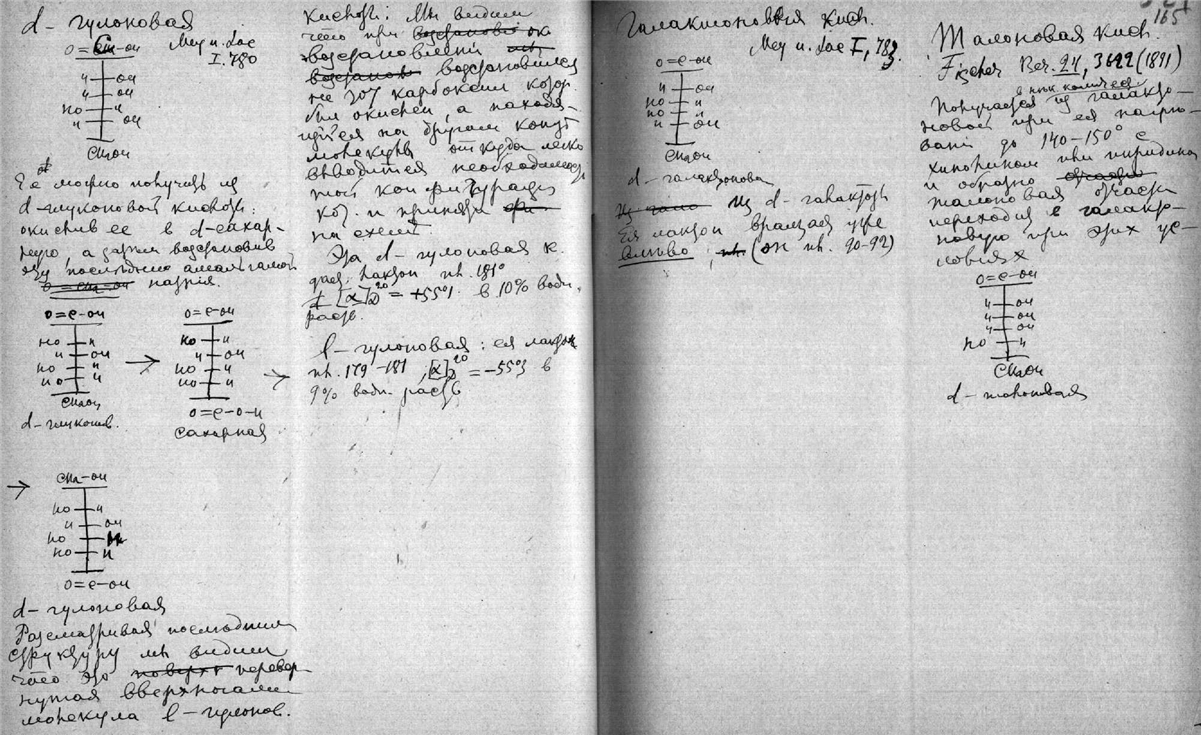 d – гулоновая
O=C–OH
Mey u. Jac
I. 780
H OH
H OH
HO H
H OH
CH₂OH
Ее можно получить из
d-глюконовой кислоты:
окислив ее в d-сахар-
ную, а затем возстановив
эту последнюю амальгамой
O=CH–OH натрия.
O=C–OH
HO H
H OH
HO H
HO H
CH₂OH
d-глюконов.
→
O=C–OH
HO H
H OH
HO H
HO H
O=C–O–H
сахарная
→
→
CH₂–OH
HO H
H OH
HO H
HO H
O=C–OH
d-гулоновая
Разсматривая последнюю
структуру мы видим
что это поверх перевер-
нутая вверх ногами
молекула l-гулонов.
кислоты: Мы видим
что при возстановл ок
возстановлении
возстанов возстановился
не тот карбоксил котор.
был окислен, а находя-
щийся на другом конце
молекулы откуда легко
выводится необходимость
той конфигурации
кот. и принята
на схеме.
Эта d-гулоновая к.
дает лактон пл. 181°
[α]D²⁰ = +55°1. в 10% водн.
раств.
l-гулоновая: ея лактон
пл. 179–181, [α]D²⁰ = –55°3 в
9% водн. раств.
Галактоновая кисл.
Mey u. Jac I, 783
O=C–OH
H OH
HO H
HO H
H OH
CH₂OH
d-галактонова
Из гало из d-галактозы
Ея лактон вращает уже
влево; пл. (он пл. 90-92)
165
Талоновая кисл.
Fischer Ber. 24, 3622 (1891)
в ных количес
Получается из галакто-
новой при ея нагре-
вании до 140–150° с
хинолином или пиридином
и обратно отчасти
талоновая отчасти
переходит в галакто-
новую при этих ус-
ловиях
O=C–OH
H OH
H OH
H OH
HO H
CH₂OH
d-талоновая